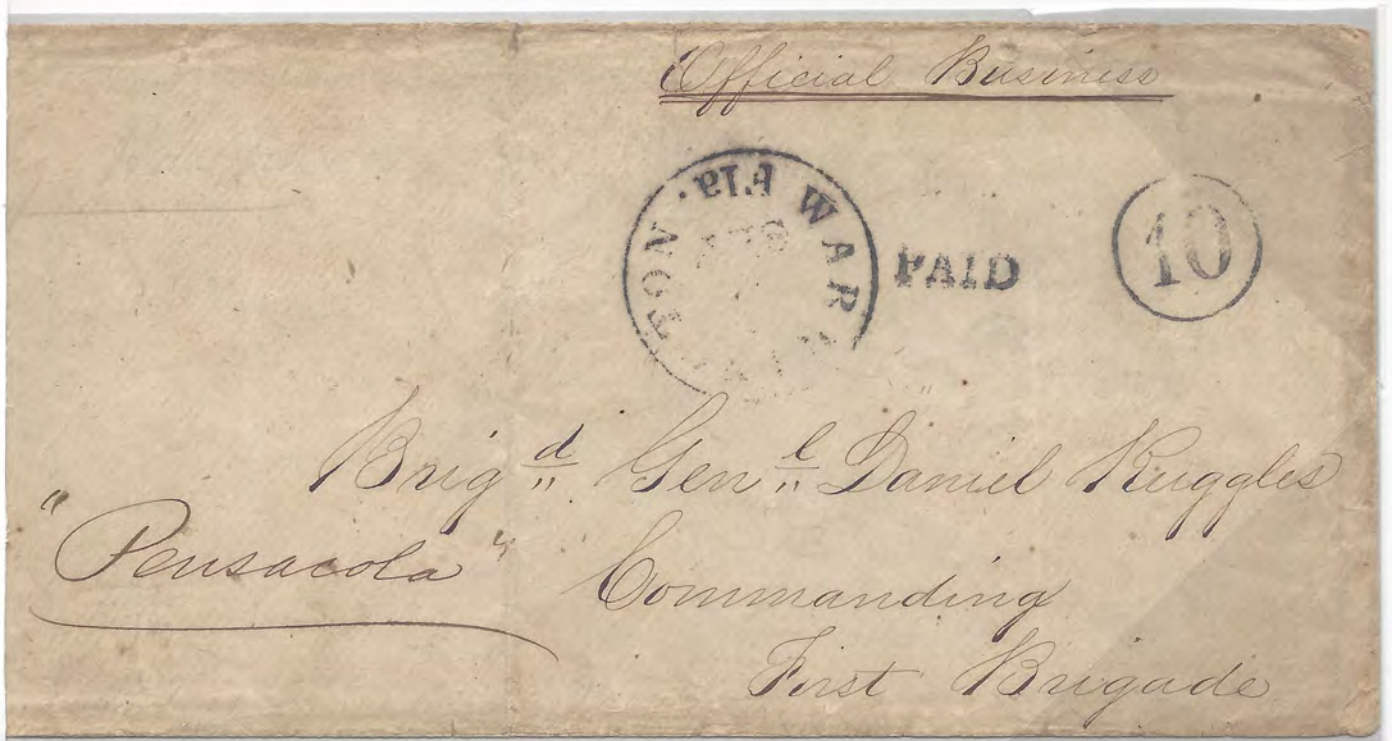 Official Business
WAR TON . Fla
PAID
10
Brig d Gen l Daniel Ruggles
"Pensacola"
Commanding
First Brigade